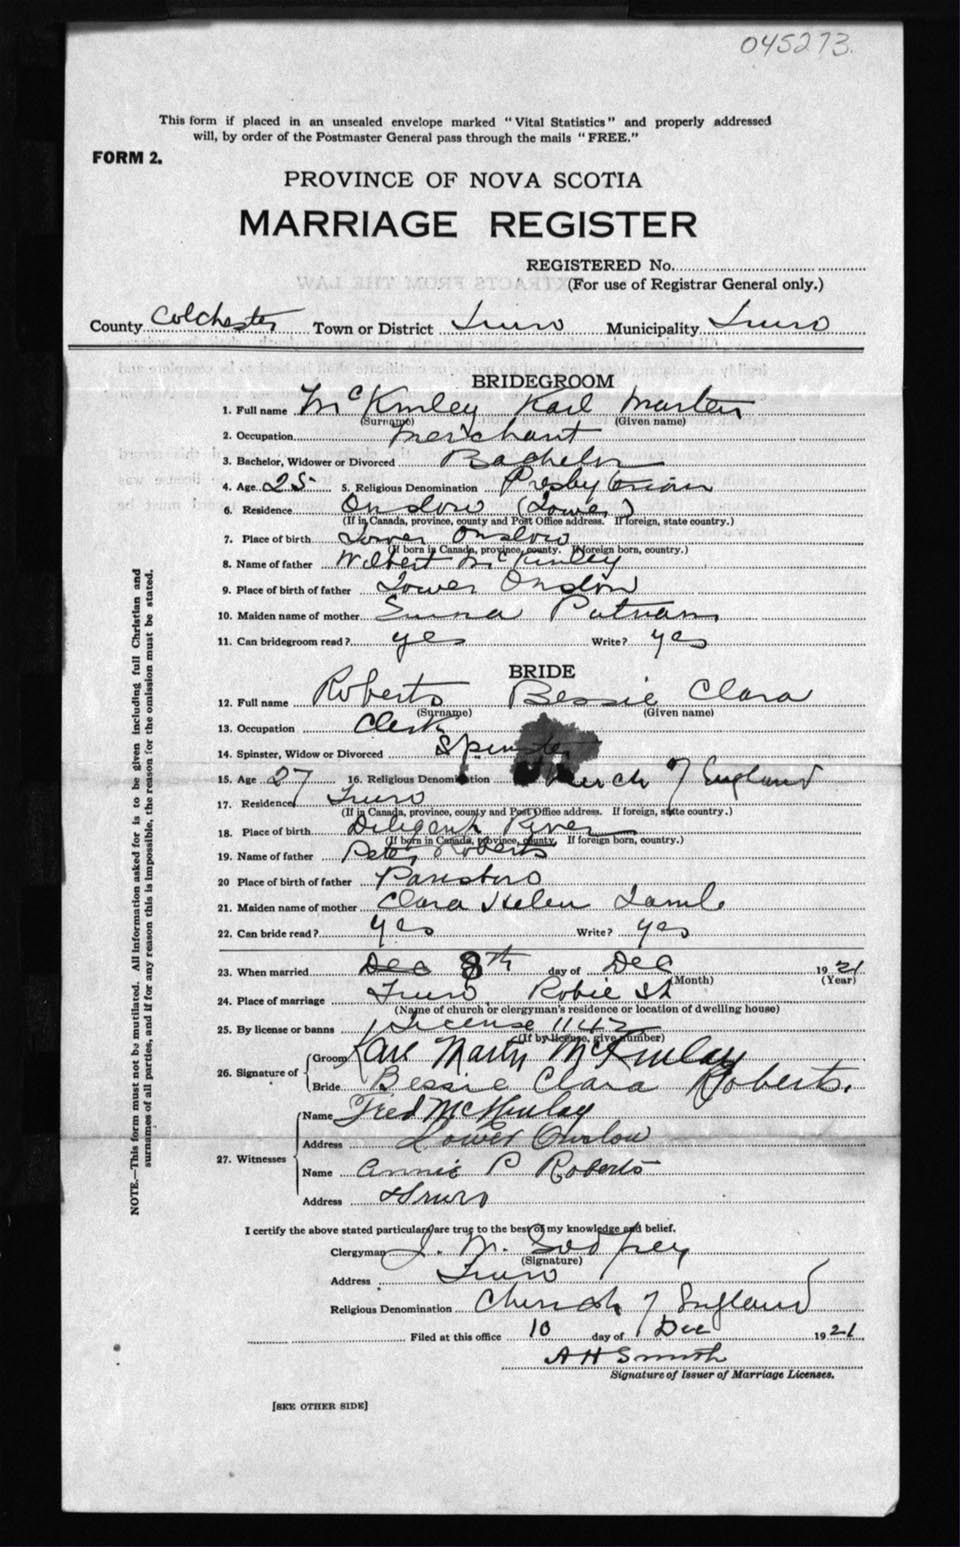 045273.
This form if placed in an unsealed envelope marked "Vital Statistics" and properly addressed
will, by order of the Postmaster General pass through the mails "FREE."
FORM 2.
PROVINCE OF NOVA SCOTIA
MARRIAGE REGISTER
REGISTERED No.
(For use of Registrar General only.)
County Colchester Town or District Truro Municipality Truro
BRIDEGROOM
1. Full name McKinley Karl Marten
(Surname) (Given name)
2. Occupation Merchant
3. Bachelor, Widower or Divorced Bachelor
4. Age 25 5. Religious Denomination Presbyterian
6. Residence Onslow (Lower)
(If in Canada, province, county and Post Office address. If foreign, state country.)
7. Place of birth Lower Onslow
(If born in Canada, province, county. If foreign born, country.)
8. Name of father Wilbert McKinley
9. Place of birth of father Lower Onslow
10. Maiden name of mother Emma Putnam
11. Can bridegroom read? yes Write? yes
BRIDE
12. Full name Roberts Bessie Clara
(Surname) (Given name)
13. Occupation Clerk
14. Spinster, Widow or Divorced Spinster
15. Age 27 16. Religious Denomination Church of England
17. Residence Truro
(If in Canada, province, county and Post Office address. If foreign, state country.)
18. Place of birth Diligent River
(If born in Canada, province, county. If foreign born, country.)
19. Name of father Peter Roberts
20 Place of birth of father Parrsboro
21. Maiden name of mother Clara Helen Lamb
22. Can bride read? yes Write? yes
23. When married Dec 8th day of Dec 1921
(Month) (Year)
24. Place of marriage Truro Robie St
(Name of church or clergyman's residence or location of dwelling house)
25. By license or banns License 1142
(If by license, give number)
26. Signature of Groom Karl Martin McKinlay
Bride Bessie Clara Roberts.
27. Witnesses Name Fred McKinlay
Address Lower Onslow
Name Annie P Roberts
Address Truro
I certify the above stated particulars are true to the best of my knowledge and belief.
Clergyman J. M. Godfrey
(Signature)
Address Truro
Religious Denomination Church of England
Filed at this office 10 day of Dec 1921
A H Smith
Signature of Issuer of Marriage Licenses.
[SEE OTHER SIDE]
NOTE.—This form must not be mutilated. All information asked for is to be given including full Christian and
surnames of all parties, and if for any reason this is impossible, the reason for the omission must be stated.